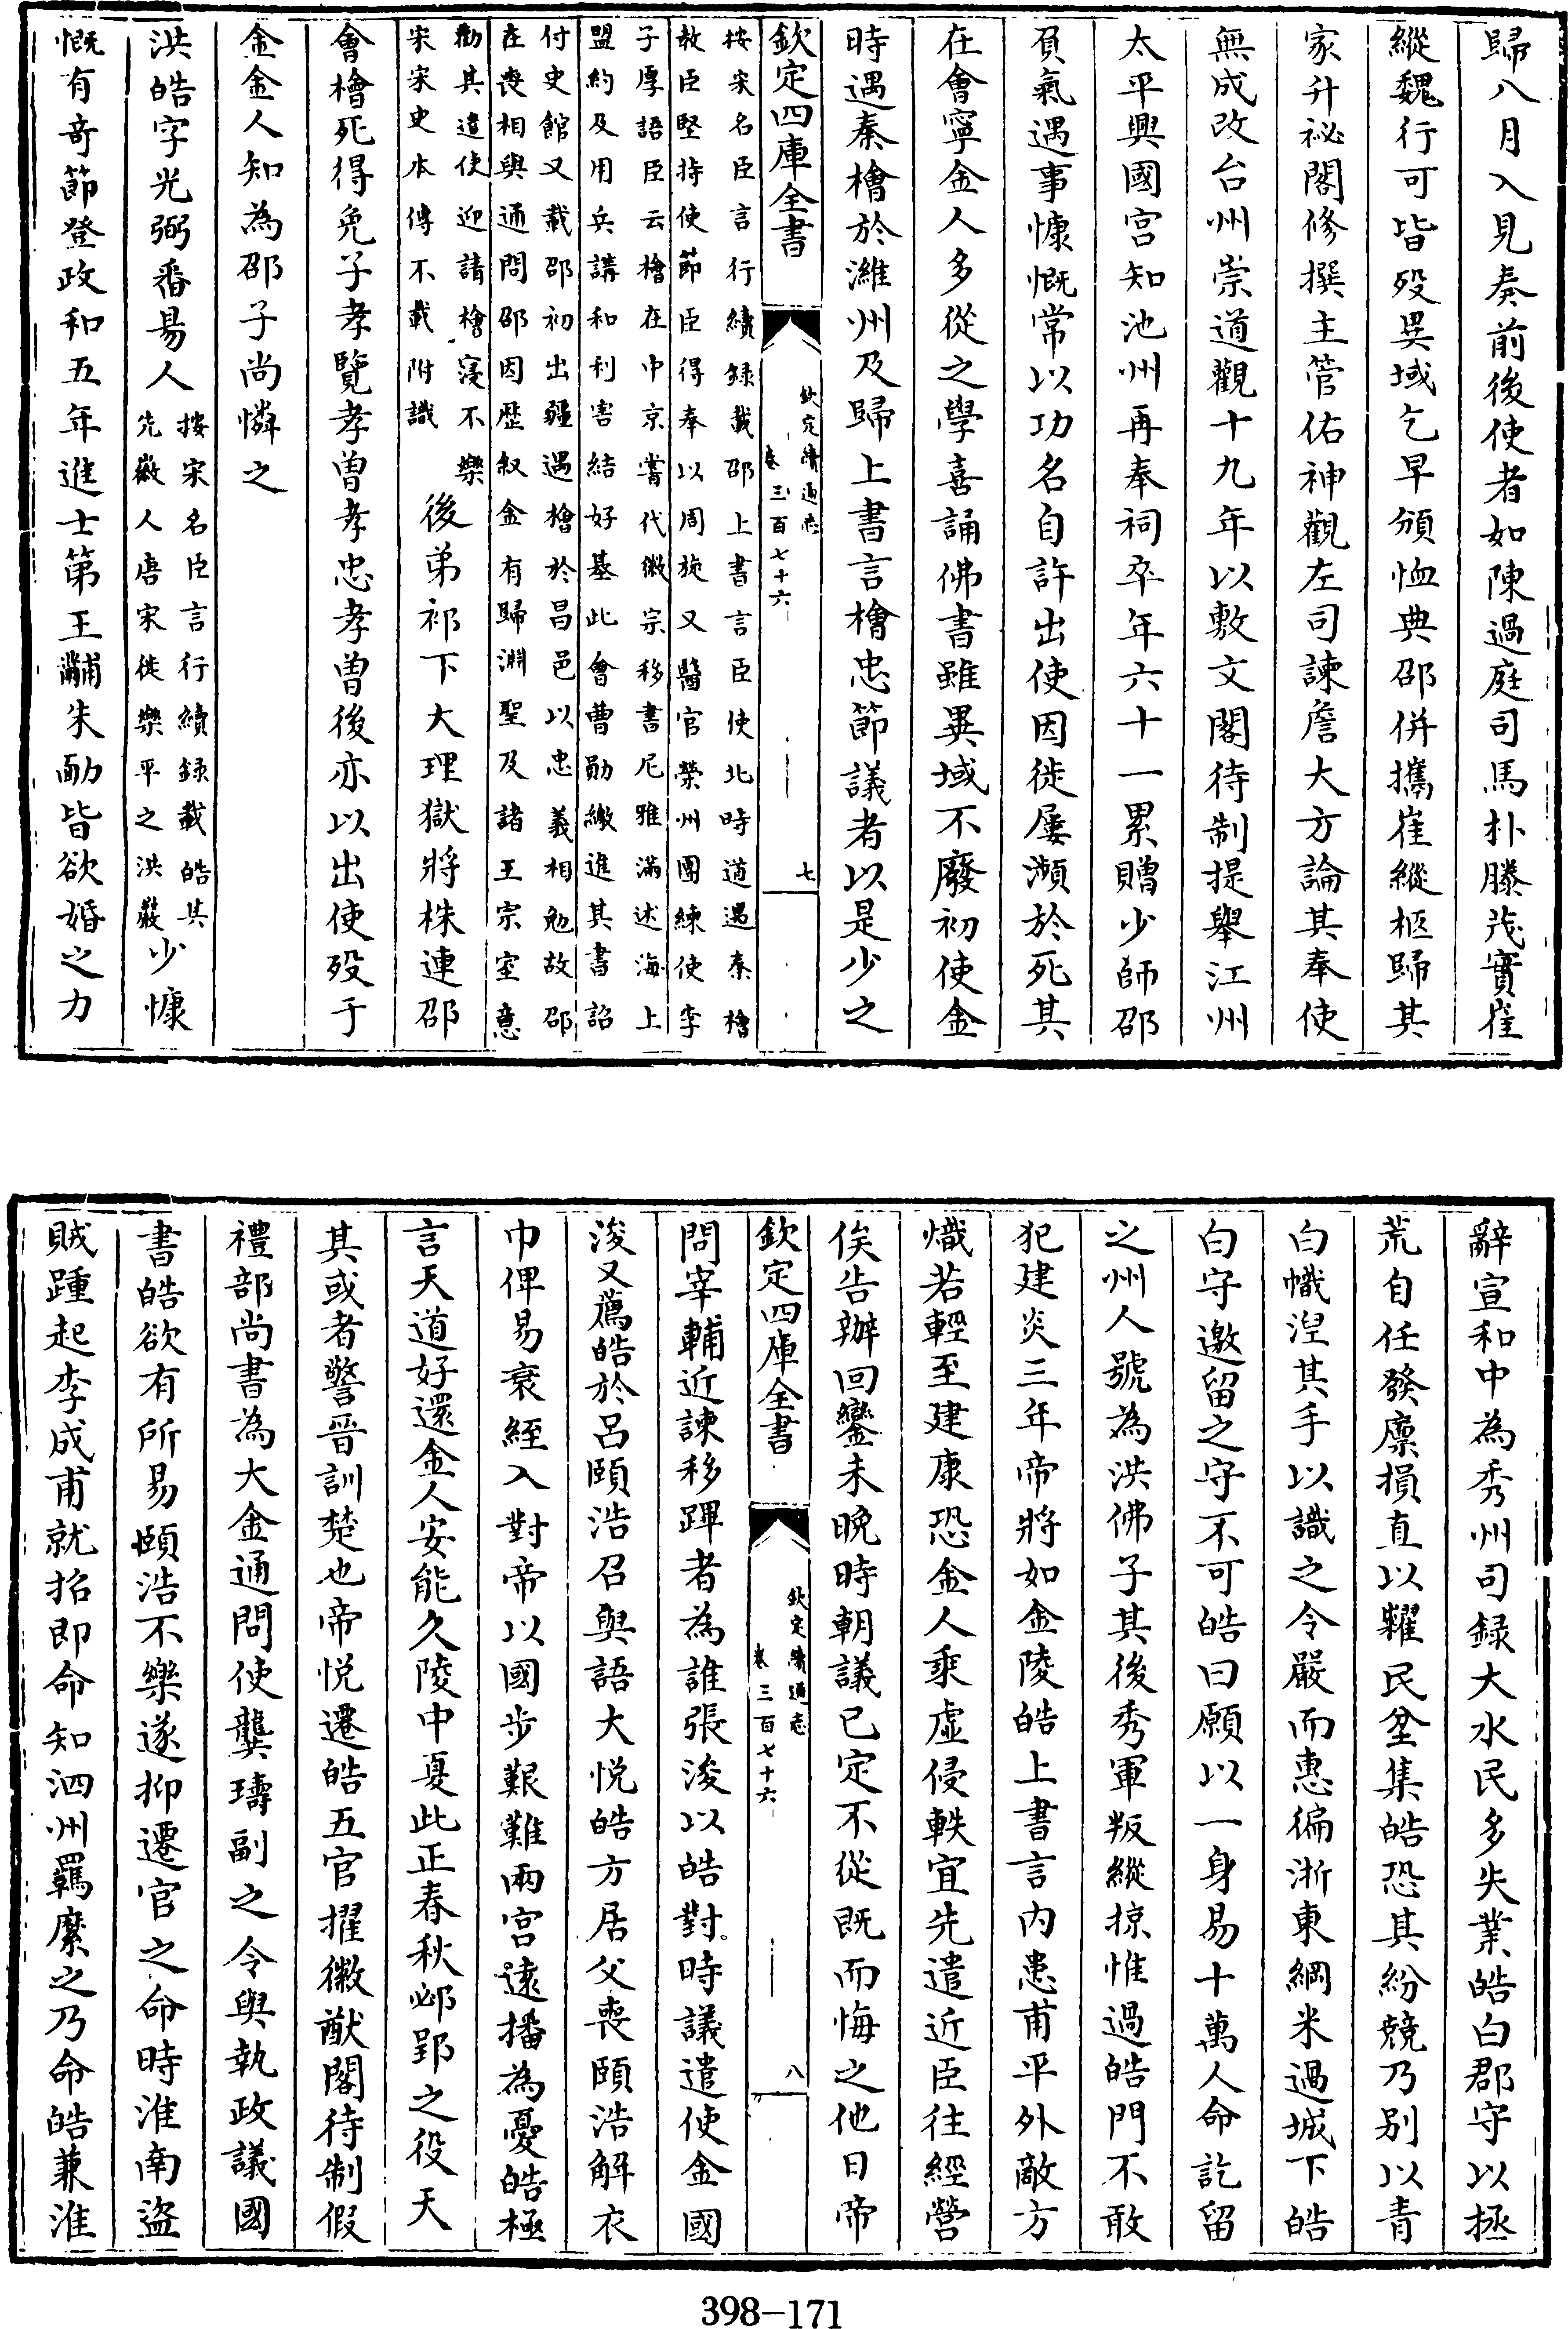 歸八月入見奏前後使者如陳過庭司馬朴滕茂實崔
縱魏行可皆殁異域乞早頒恤典邵併攜崔縱柩歸其
家升祕閣修撰主管佑神觀左司諫詹大方論其奉使
無成改台州崇道觀十九年以敷文閣待制提舉江州
太平興國宫知池州再奉祠卒年六十一累贈少師邵
負氣遇事慷慨常以功名自許出使因徙屢瀕於死其
在會寧金人多從之學喜誦佛書雖異域不廢初使金
時遇秦檜於濰州及歸上書言檜忠節議者以是少之
欽定四庫全書
欽定續通志
卷三百七十六
七
按宋名臣言行續録載邵上書言臣使北時道遇秦檜
教臣堅持使節臣得奉以周旋又醫官榮州團練使李
子厚語臣云檜在中京嘗代徽宗移書尼雅滿述海上
盟約及用兵講和利害結好基此會曹勛繳進其書詔
付史館又載邵初出疆遇檜於昌邑以忠義相勉故邵
在喪相與通問邵因歴叙金有歸淵聖及諸王宗室意
勸其遣使迎請檜寖不樂
宋宋史本傳不載附識
後弟祁下大理獄將株連邵
會檜死得免子孝覽孝曽孝忠孝曽後亦以出使殁于
金金人知為邵子尚憐之
洪皓字光弼番易人
按宋名臣言行續録載皓其
先徽人唐宋徙樂平之洪巖
少慷
慨有奇節登政和五年進士第王黼朱勔皆欲婚之力
辭宣和中為秀州司録大水民多失業皓白郡守以拯
荒自任發廪損直以糶民坌集皓恐其紛競乃别以青
白幟涅其手以識之令嚴而惠徧浙東綱米過城下皓
白守邀留之守不可皓曰願以一身易十萬人命訖留
之州人號為洪佛子其後秀軍叛縱掠惟過皓門不敢
犯建炎三年帝將如金陵皓上書言内患甫平外敵方
熾若輕至建康恐金人乘虚侵軼宜先遣近臣往經營
俟告辦回鑾未晚時朝議已定不從既而悔之他日帝
欽定四庫全書
欽定續通志
卷三百七十六
八
問宰輔近諫移蹕者為誰張浚以皓對時議遣使金國
浚又薦皓於呂頤浩召與語大悦皓方居父喪頤浩解衣
巾俾易衰絰入對帝以國步艱難兩宫逺播為憂皓極
言天道好還金人安能久陵中夏此正春秋邲郢之役天
其或者警晉訓楚也帝悦遷皓五官擢徽猷閣待制假
禮部尚書為大金通問使龔璹副之令與執政議國
書皓欲有所易頤浩不樂遂抑遷官之命時淮南盜
賊踵起李成甫就招即命知泗州羈縻之乃命皓兼淮
398-171